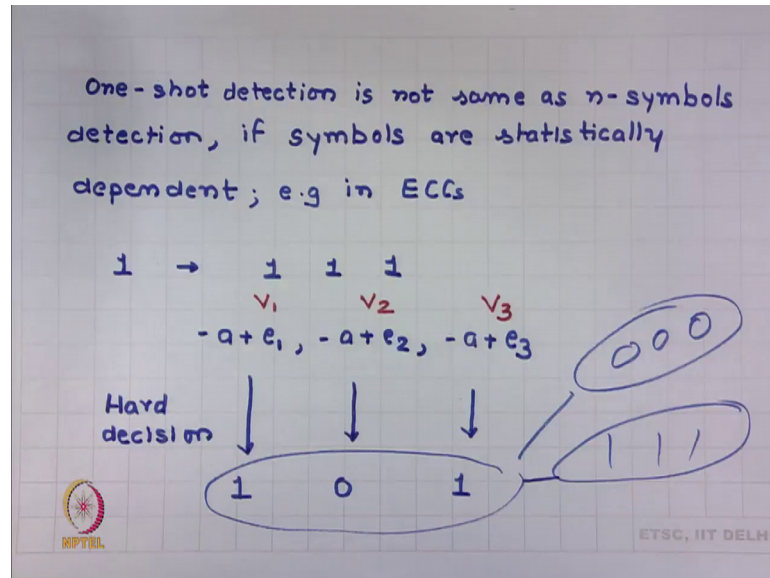 One-shot detection is not same as n-symbols
detection, if symbols are statistically
dependent; e.g in ECCs
1 → 1 1 1
V₁ V₂ V₃
-a+e₁, -a+e₂, -a+e₃
Hard
decision
1 0 1
0 0 0
1 1 1
NPTEL
ETSC, IIT DELH